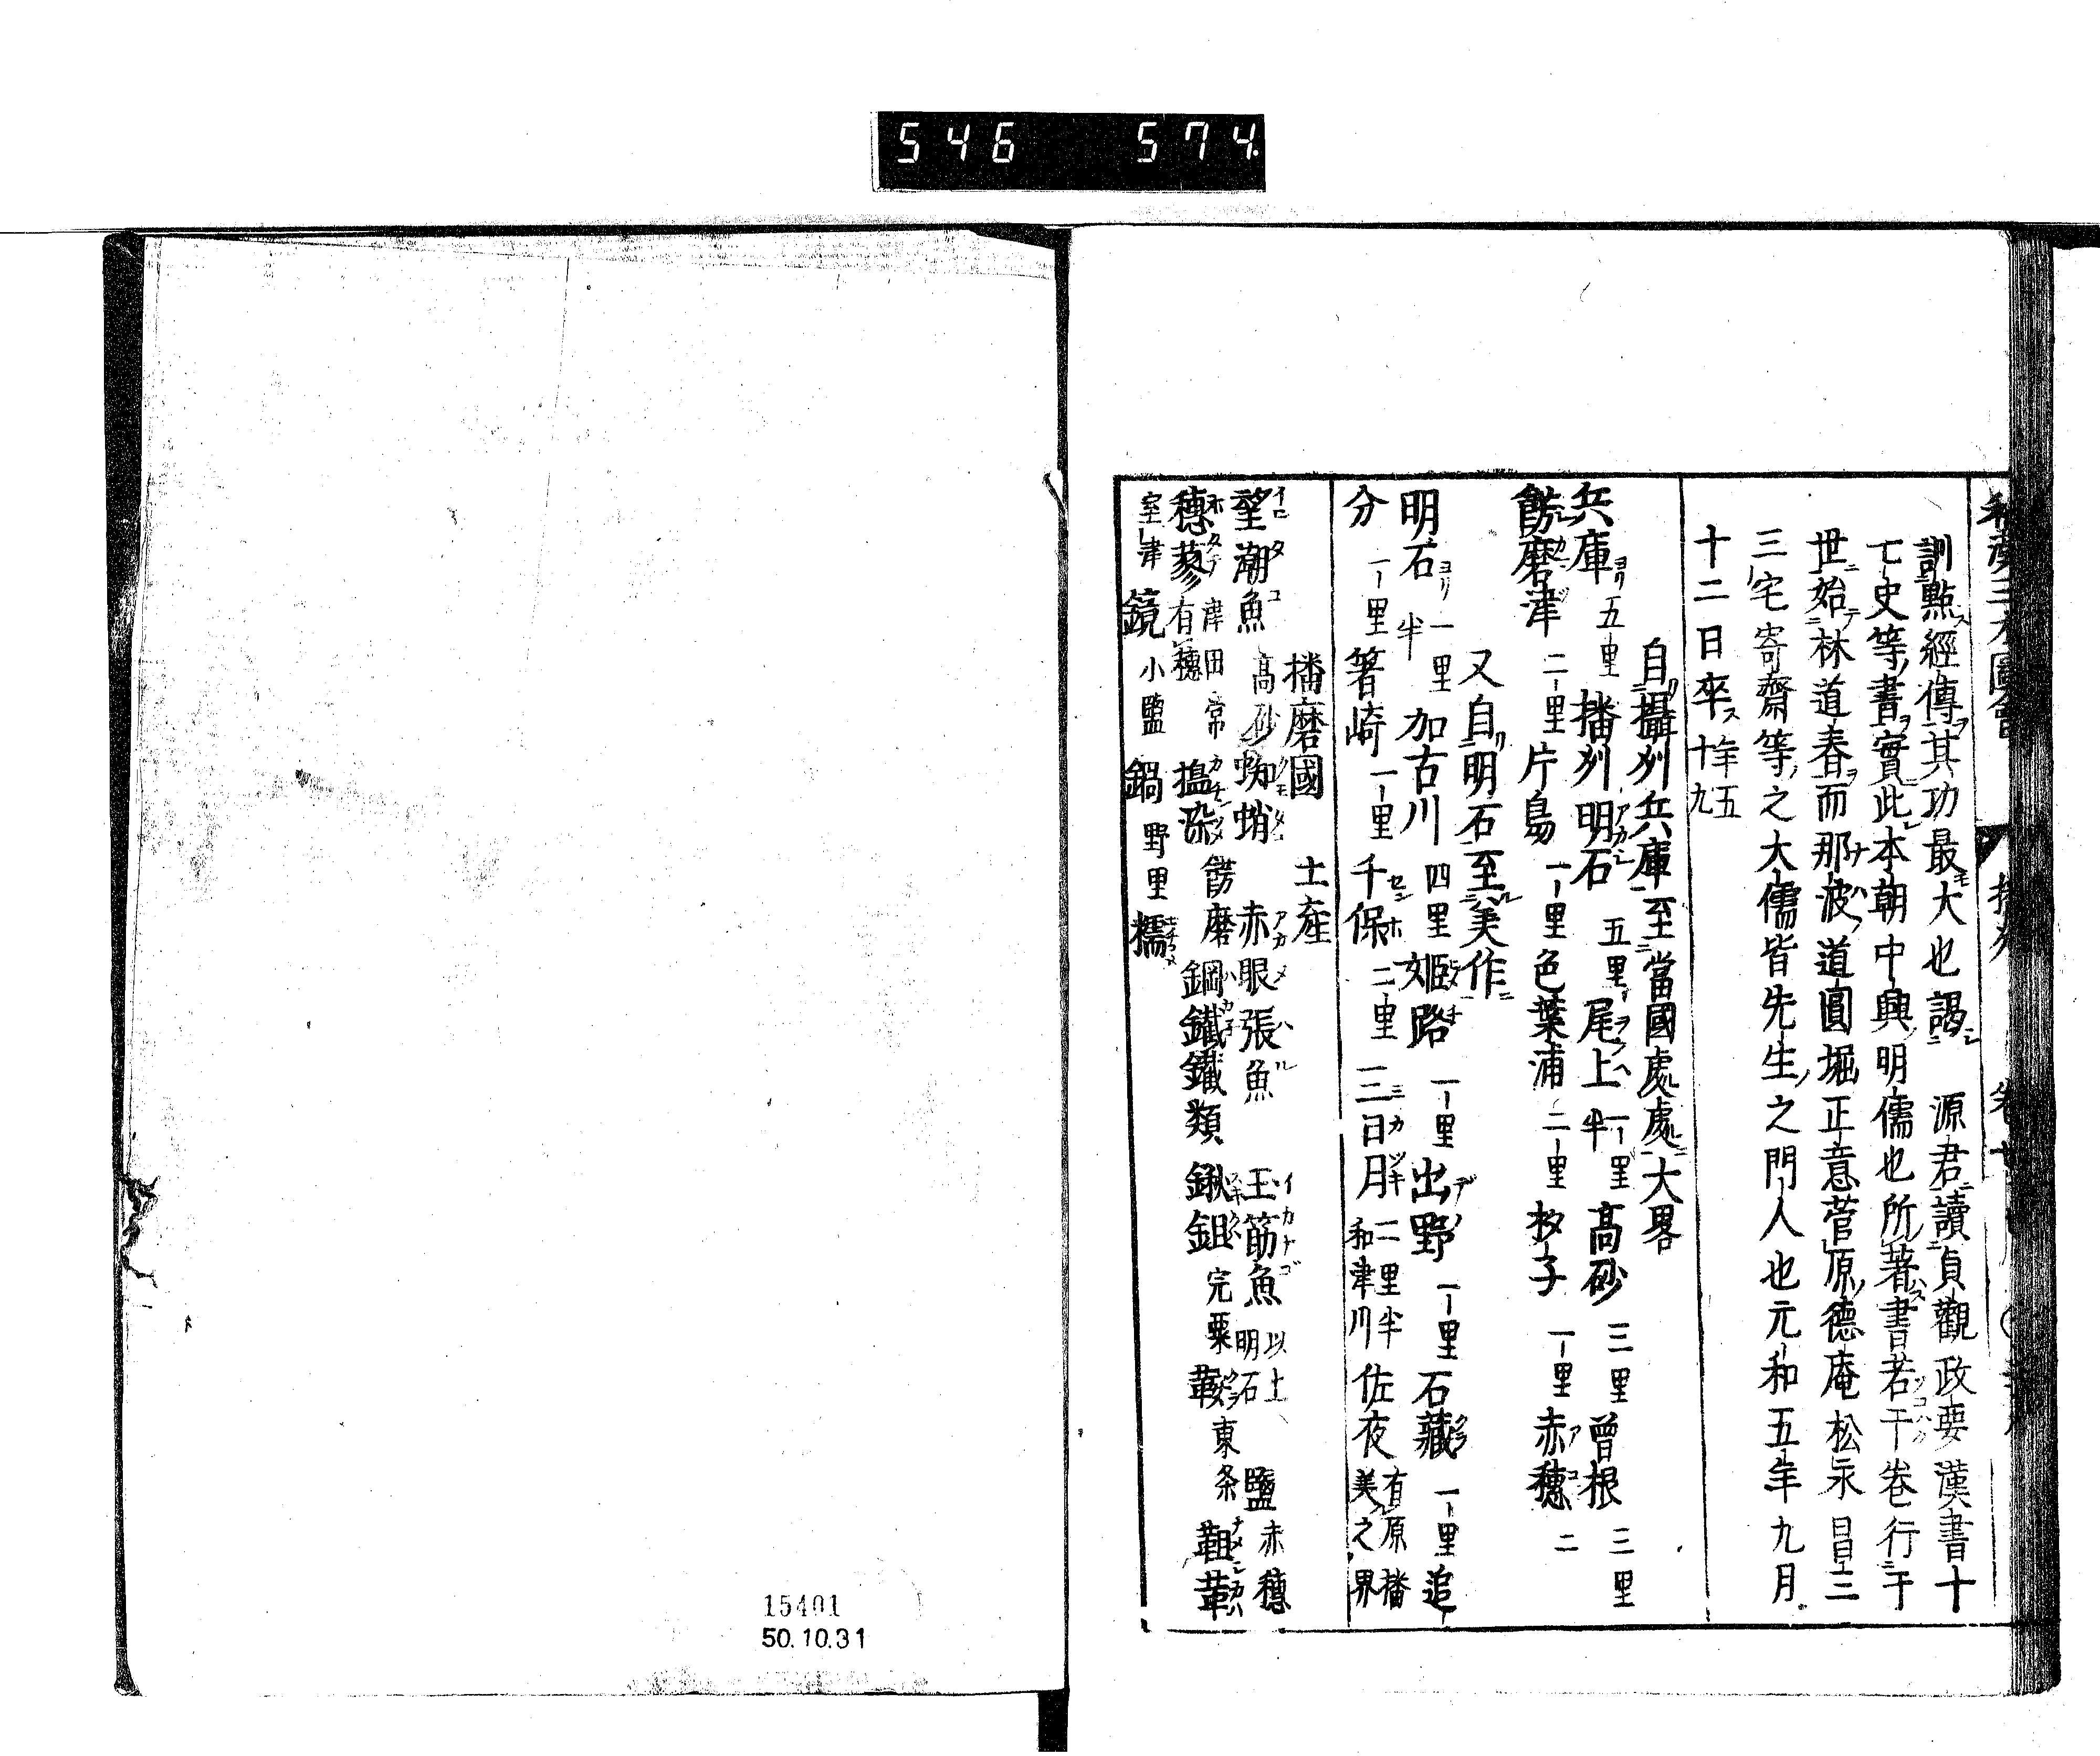 546 574
訓點經傳其功最大也謁 源君讀貞觀政要漢書十
七史等書實此本朝中興明儒也所著書若干卷行于
世始林道春而那波道圓堀正意菅原德庵松永昌三
三宅寄齋等之大儒皆先生之門人也元和五年九月
十二日卒年五十九
自攝州兵庫至當國處處大畧
兵庫 五里 播州明石 五里 尾上 一里半 高砂 三里 曾根 三里
餝磨津 二里 片島 一里 色葉浦 二里 坂子 一里 赤穗 二
又自明石至美作
明石 一里半 加古川 四里 姬路 一里 出野 一里 石藏 一里 追
分 一里 箸崎 一里 千保 二里 三日月 二里半 和津川 佐夜 有原播美之界
播磨國 土產
望潮魚 高砂 蜘蛸 赤眼張魚 玉筋魚 以上明石 鹽 赤穗
穗蓼 有穗 搵染 餝磨 鋼鐵鐵類 鍬鉏 完粟 鞍 東条 靻韋
室津 鏡 小鹽 鍋 野里 糯
15401
50.10.31